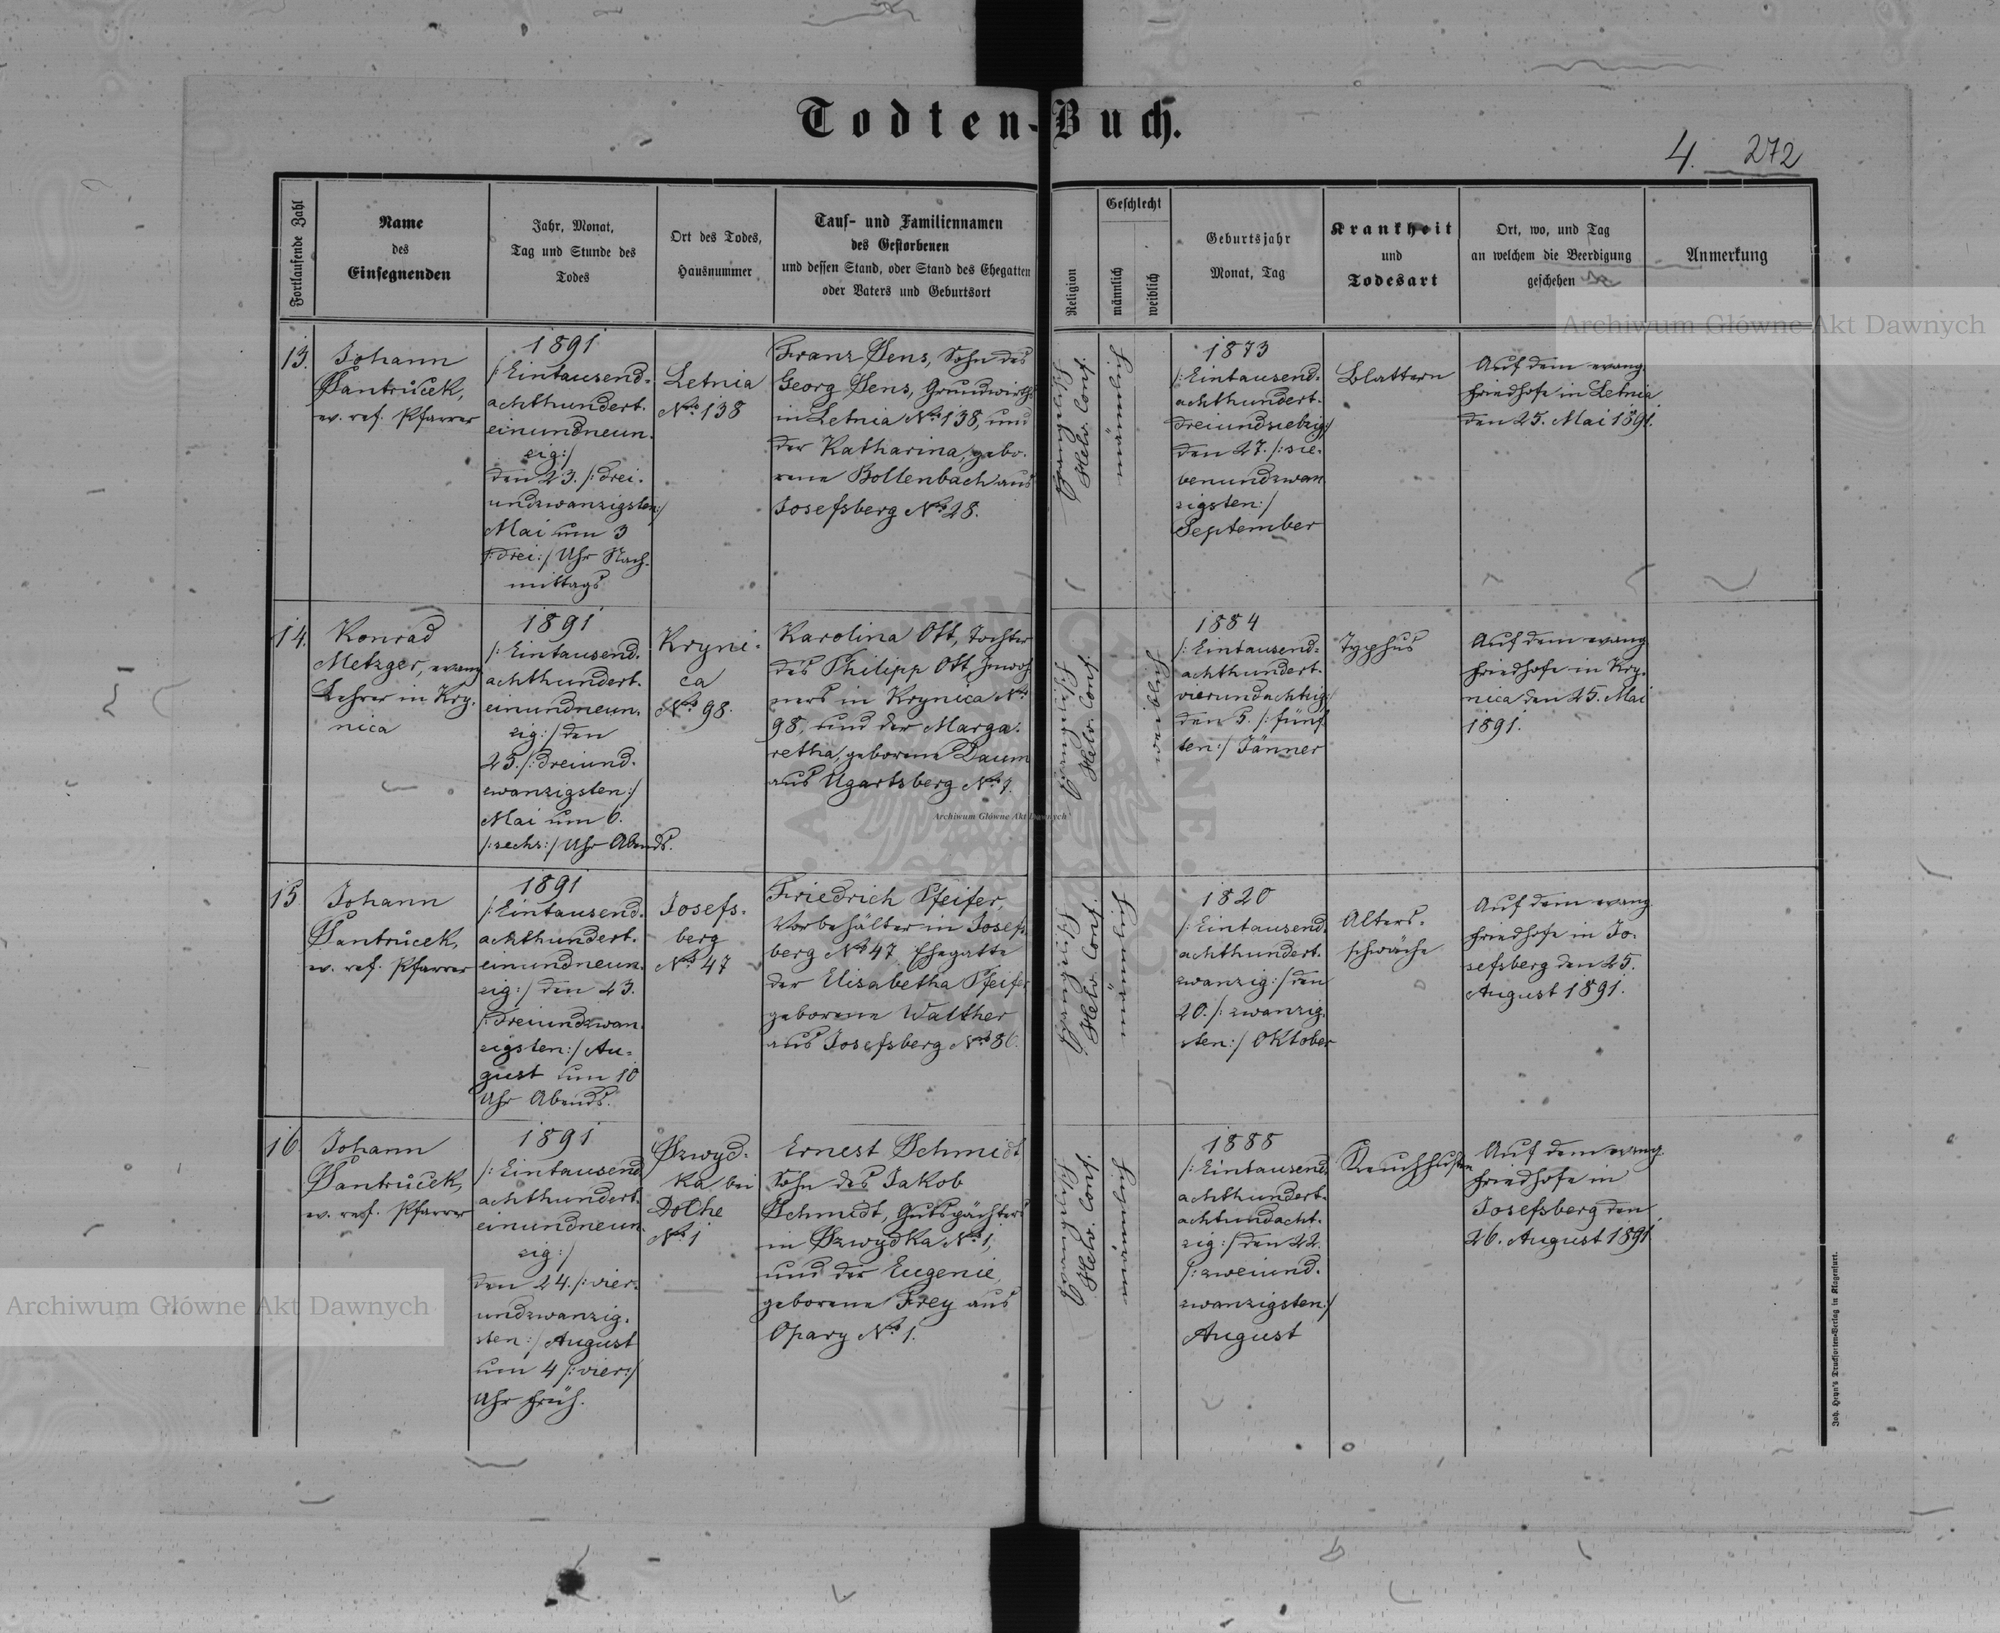 Todten-Buch.
4. 272
Fortlaufende Zahl
Name
des
Einsegnenden
Jahr, Monat,
Tag und Stunde des
Todes
Ort des Todes,
Hausnummer
Tauf- und Familiennamen
des Gestorbenen
und dessen Stand, oder Stand des Ehegatten
oder Vaters und Geburtsort
Religion
Geschlecht
männlich
weiblich
Geburtsjahr
Monat, Tag
Krankheit
und
Todesart
Ort, wo, und Tag
an welchem die Beerdigung
geschehen
Anmerkung
13.
Johann
Šantrůček,
ev. ref. Pfarrer
1891
/:Eintausend-
achthundert-
einundneun-
zig:/
den 23. /:drei-
undzwanzigsten:/
Mai um 3
/:drei:/ Uhr Nach-
mittags
Letnia
No 138
Franz Sens, Sohn des
Georg Sens, Grundwirths
in Letnia No 138, und
der Katharina, gebo-
rene Bollenbach aus
Josefsberg No 28.
Evangelisch
Helv. Conf.
männlich
1873
/:Eintausend-
achthundert-
dreiundsiebzig:/
den 27. /:sie-
benundzwan
zigsten:/
September
Blattern
Auf dem evang.
Friedhofe in Letnia
den 25. Mai 1891.
14.
Konrad
Metzger, evang.
Lehrer in Kry-
nica
1891
/:Eintausend-
achthundert-
einundneun-
zig:/ den
23. /:dreiund-
zwanzigsten:/
Mai um 6.
/:sechs:/ Uhr Abends.
Kryni-
ca
No 98.
Karolina Ott, Tochter
des Philipp Ott, Inwoh
ners in Krynica No
98, und der Marga-
retha, geborene Daum
aus Ugartsberg No 1.
Evangelisch
Helv. Conf.
weiblich
1884
/:Eintausend-
achthundert-
vierundachtzig:/
den 5. /:fünf-
ten:/ Jänner
Typhus
Auf dem evang.
Friedhofe in Kry-
nica den 25. Mai
1891.
15
Johann
Šantrůček,
ev. ref. Pfarrer
1891
/:Eintausend-
achthundert-
einundneun-
zig:/ den 23.
/:dreiundzwan-
zigsten:/ Au-
gust um 10
Uhr Abends.
Josefs-
berg
No 47
Friedrich Pfeifer,
Vorbehälter in Josefs
berg No 47 Ehegatte
der Elisabetha Pfeifer
geborene Walther
aus Josefsberg No 86.
Evangelisch
Helv. Conf.
männlich
1820
/:Eintausend-
achthundert-
zwanzig:/ den
20. /:zwanzig-
sten:/ Oktober
Alters-
schwäche
Auf dem evang.
Friedhofe in Jo-
sefsberg den 25.
August 1891.
16
Johann
Šantrůček,
ev. ref. Pfarrer
1891
/:Eintausend
achthundert-
einundneun-
zig:/
den 24. /:vier-
undzwanzig-
sten:/ August
um 4 /:vier:/
Uhr früh.
Szwyd-
ka bei
Dołhe
No 1
Ernest Schmidt
Sohn des Jakob
Schmidt, Gutspächters
in Szwydka No 1,
und der Eugenie,
geborene Frey aus
Opary No 1.
Evangelisch
Helv. Conf.
männlich
1888
/:Eintausend-
achthundert-
achtundacht-
zig:/ den 22.
/:zweiund-
zwanzigsten:/
August
Keuchhusten
Auf dem evang.
Friedhofe in
Josefsberg den
26. August 1891
Joh. Heyn's Drucksorten-Verlag in Klagenfurt.
Archiwum Główne Akt Dawnych
Archiwum Główne Akt Dawnych
Archiwum Główne Akt Dawnych